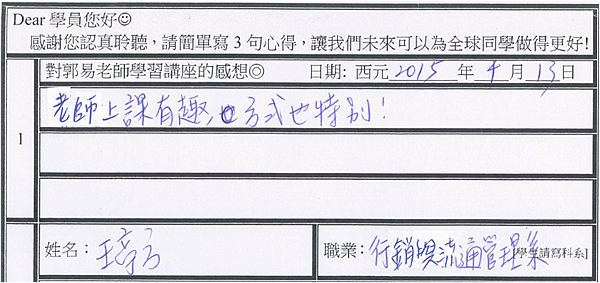 Dear 學員您好☺
感謝您認真聆聽，請簡單寫 3 句心得，讓我們未來可以為全球同學做得更好!
對郭易老師學習講座的感想◎ 日期: 西元 2015 年 4 月 13 日
1
老師上課有趣, 方式也特別!
姓名： 王
職業： 行銷與流通管理系 [學生請寫科系]